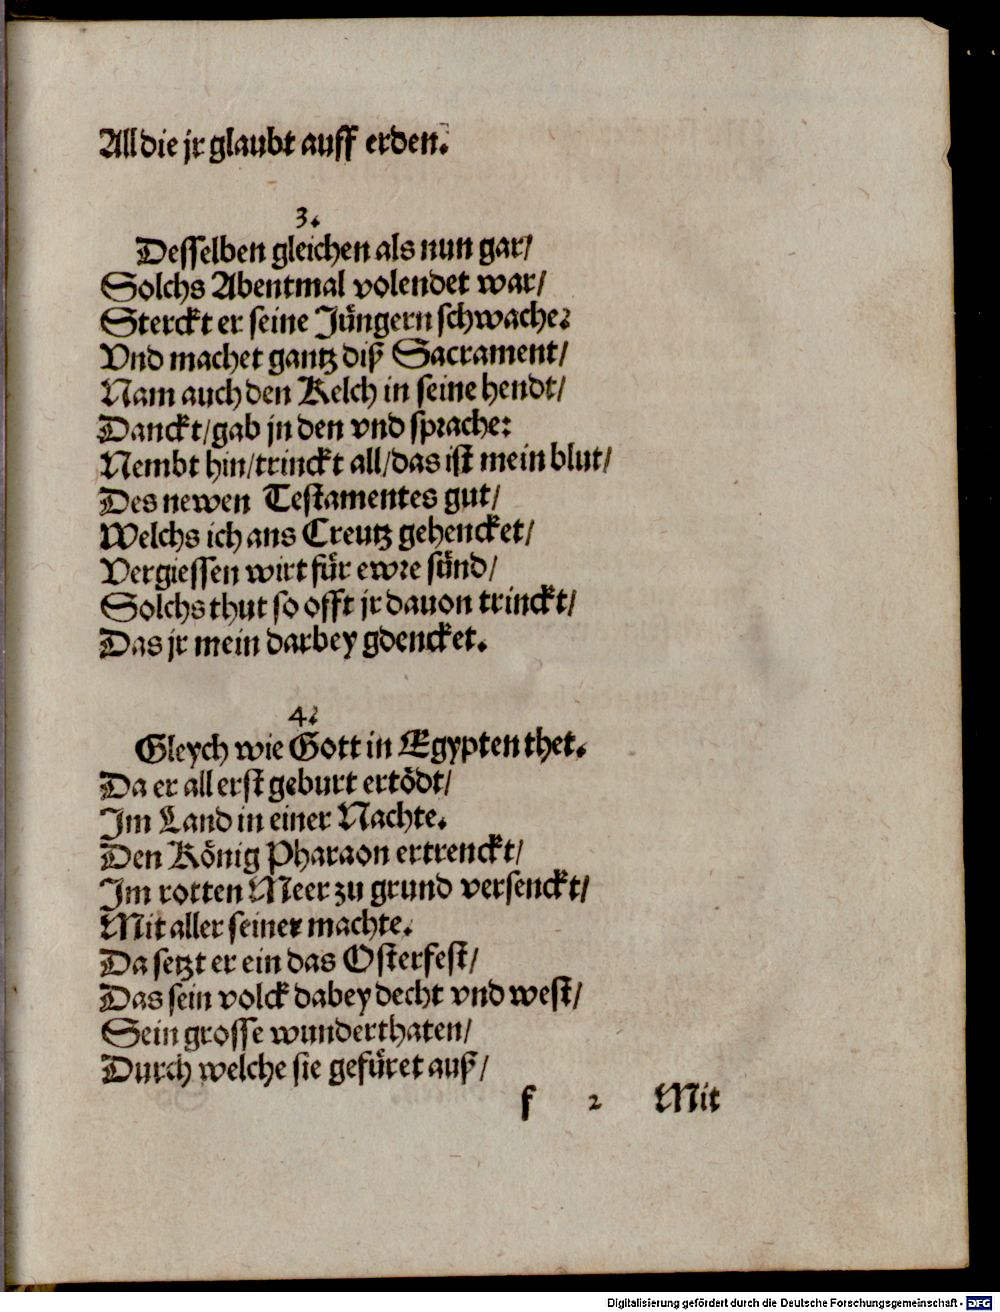 All die jr glaubt auff erden.
3.
Desselben gleichen als nun gar/
Solchs Abentmal volendet war/
Sterckt er seine Jüngern schwache:
Vnd machet gantz diß Sacrament/
Nam auch den Kelch in seine hendt/
Danckt/gab jn den vnd sprache:
Nembt hin/trinckt all/das ist mein blut/
Des newen Testamentes gut/
Welchs ich ans Creutz gehencket/
Vergiessen wirt für ewre sünd/
Solchs thut so offt jr dauon trinckt/
Das jr mein darbey gdencket.
4.
Gleych wie Gott in Egypten thet.
Da er all erst geburt ertödt/
Im Land in einer Nachte.
Den König Pharaon ertrenckt/
Im rotten Meer zu grund versenckt/
Mit aller seiner machte.
Da setzt er ein das Osterfest/
Das sein volck dabey decht vnd west/
Sein grosse wunderthaten/
Durch welche sie gefüret auß/
f 2 Mit
Digitalisierung gefördert durch die Deutsche Forschungsgemeinschaft - DFG